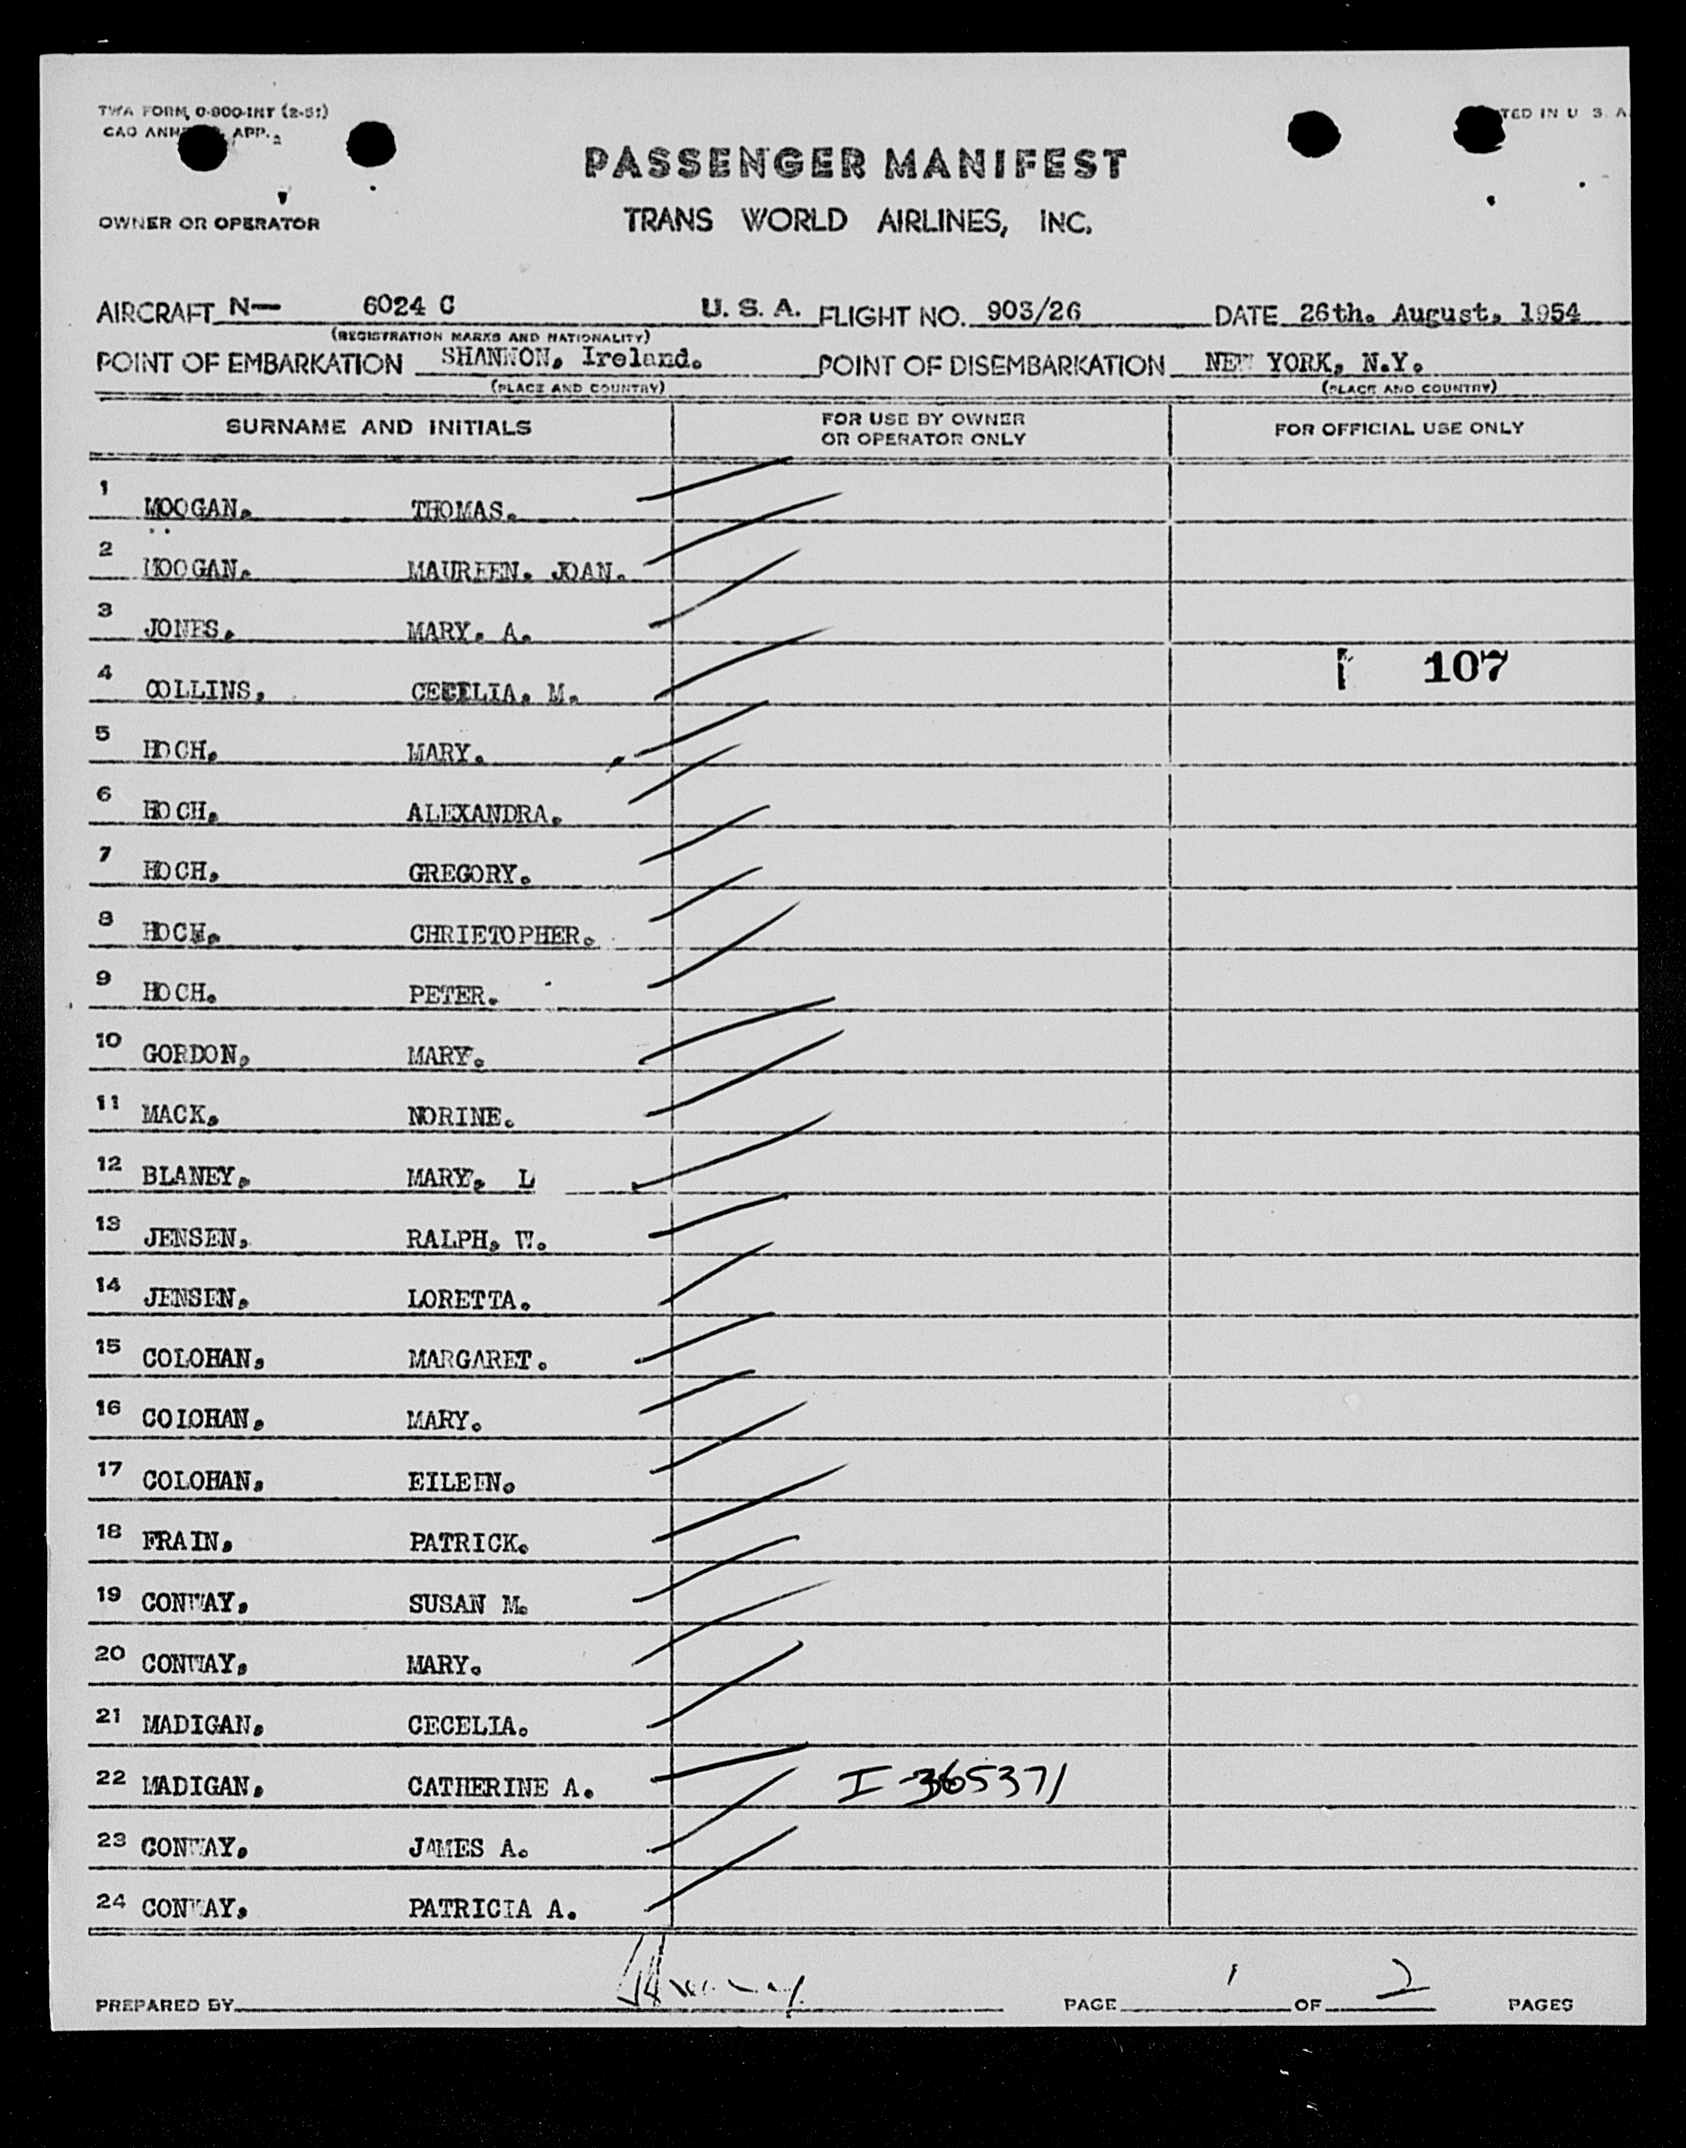 TWA FORM O-900-INT (2-51)
CAO ANN APP.
TED IN U. S. A.
PASSENGER MANIFEST
OWNER OR OPERATOR
TRANS WORLD AIRLINES, INC.
AIRCRAFT N— 6024 C U. S. A. FLIGHT NO. 903/26 DATE 26th. August. 1954
(REGISTRATION MARKS AND NATIONALITY)
POINT OF EMBARKATION SHANNON, Ireland. POINT OF DISEMBARKATION NEW YORK, N.Y.
(PLACE AND COUNTRY) (PLACE AND COUNTRY)
SURNAME AND INITIALS FOR USE BY OWNER OR OPERATOR ONLY FOR OFFICIAL USE ONLY
1 MOOGAN. THOMAS.
2 MOOGAN. MAUREEN. JOAN.
3 JONES. MARY. A.
4 COLLINS. CECELIA. M. 107
5 HOCH. MARY.
6 HOCH. ALEXANDRA.
7 HOCH. GREGORY.
8 HOCH. CHRIETOPHER.
9 HOCH. PETER.
10 GORDON, MARY.
11 MACK, NORINE.
12 BLANEY. MARY. L
13 JENSEN, RALPH, W.
14 JENSEN, LORETTA.
15 COLOHAN, MARGARET.
16 COLOHAN, MARY.
17 COLOHAN, EILEEN.
18 FRAIN, PATRICK.
19 CONWAY, SUSAN M.
20 CONWAY, MARY.
21 MADIGAN, CECELIA.
22 MADIGAN, CATHERINE A. I-365371
23 CONWAY. JAMES A.
24 CONWAY, PATRICIA A.
PREPARED BY PAGE 1 OF 2 PAGES